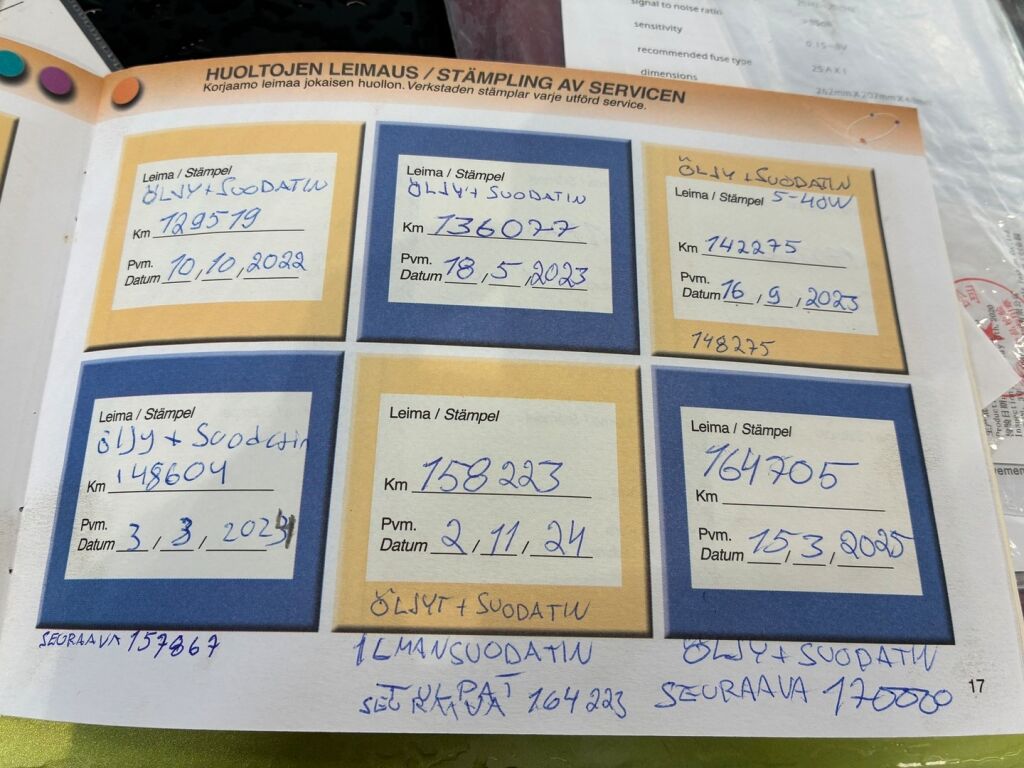 signal to noise ratio
sensitivity
0.15~8V
recommended fuse type
25A X 1
dimensions
HUOLTOJEN LEIMAUS / STÄMPLING AV SERVICEN
Korjaamo leimaa jokaisen huollon. Verkstaden stämplar varje utförd service.
Leima / Stämpel
ÖLJY + SUODATIN
Km 129519
Pvm.
Datum 10, 10, 2022
Leima / Stämpel
ÖLJY + SUODATIN
Km 136077
Pvm.
Datum 18, 5, 2023
ÖLJY + SUODATIN
Leima / Stämpel 5-40W
Km 142275
Pvm.
Datum 16, 9, 2023
148275
Leima / Stämpel
öljy + Suodatin
Km 148604
Pvm.
Datum 3, 3, 2024
SEURAAVA 157867
Leima / Stämpel
Km 158223
Pvm.
Datum 2, 11, 24
ÖLJYT + SUODATIN
ILMANSUODATIN
TULPAT
SEURAAVA 164223
Leima / Stämpel
164705
Km
Pvm.
Datum 15, 3, 2025
ÖLJY + SUODATIN
SEURAAVA 170000
17